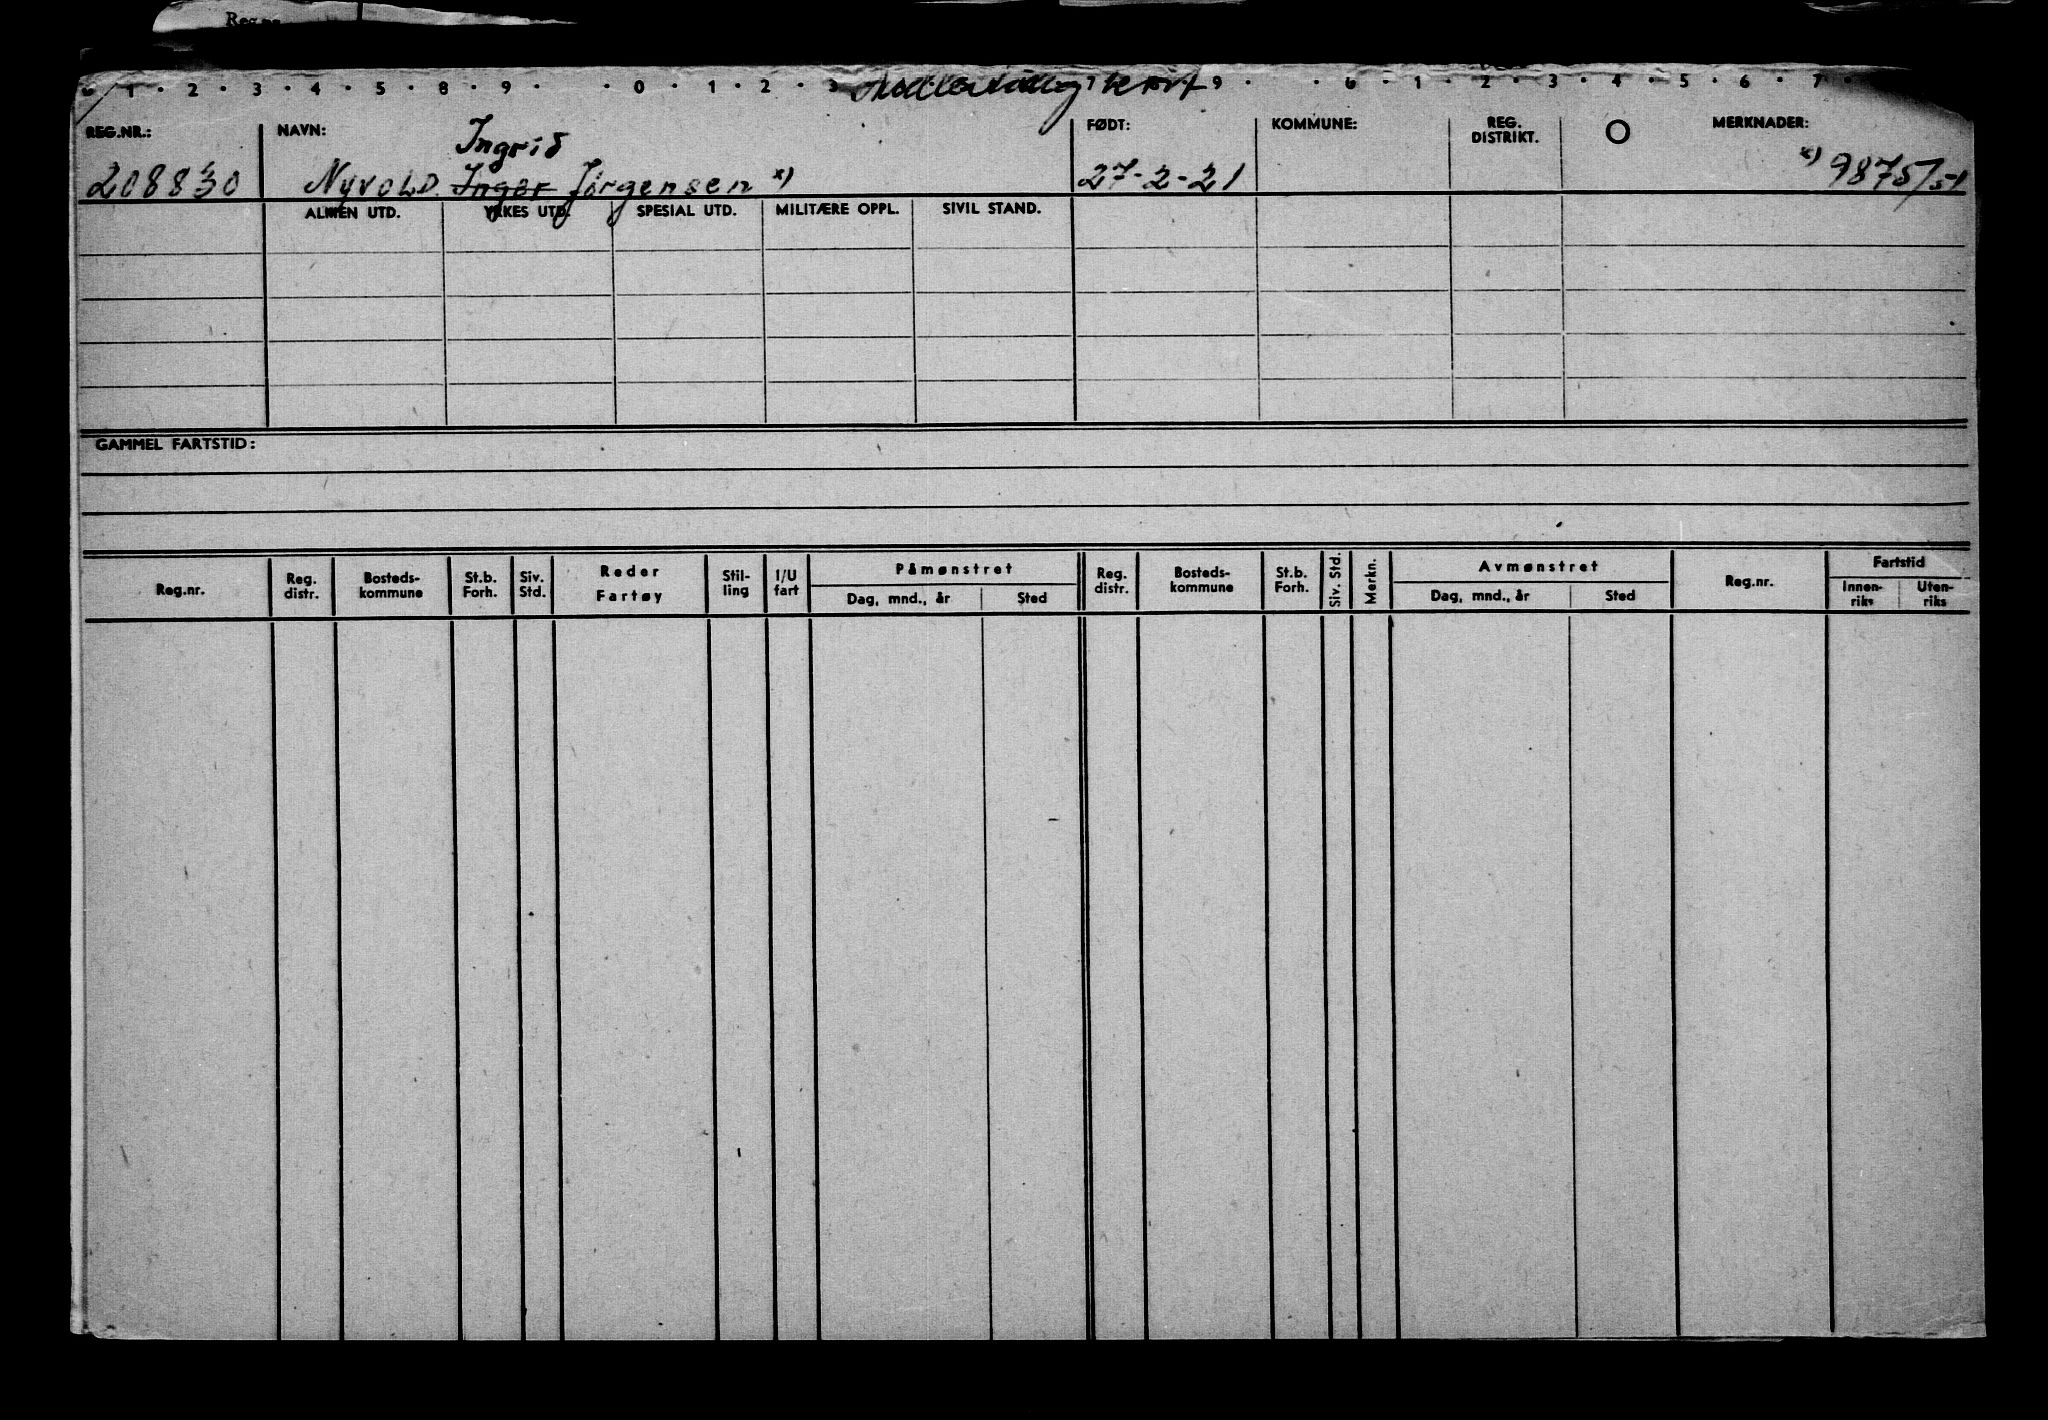 Reg.nr.
1 · 2 · 3 · 4 · 5 · 8 · 9 · · 0 · 1 · 2 · 3 7 kort 9 · · 6 · 1 · 2 · 3 · 4 · 5 · 6 · 7 ·
REG.NR.: NAVN: FØDT: KOMMUNE: REG. DISTRIKT. O MERKNADER:
Ingrid
208830 Nyvold. Inger Jørgensen x) 27-2-21 x) 9875/51
ALMEN UTD. YRKES UTD. SPESIAL UTD. MILITÆRE OPPL. SIVIL STAND.
GAMMEL FARTSTID:
Reg.nr. Reg. distr. Bosteds- kommune St.b. Forh. Siv. Std. Reder Fartøy Stil- ling I/U fart Påmønstret Dag, mnd., år Sted Reg. distr. Bosteds- kommune St.b. Forh. Siv. Std. Merkn. Avmønstret Dag, mnd., år Sted Reg.nr. Fartstid Innen- riks Uten- riks